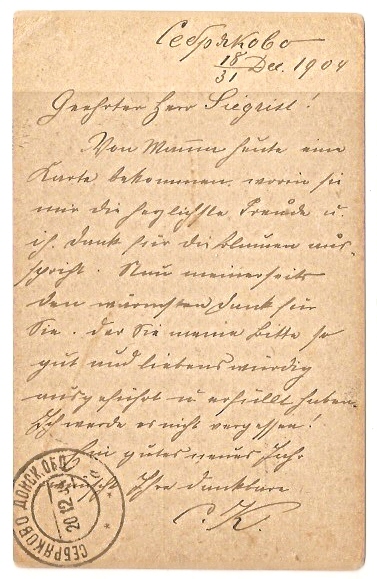 Себряково
18/31 Dec. 1904
Geehrter Herr Siegrist!
Von Mama heute eine
Karte bekommen, worin sie
mir die herzlichste Freude u.
ih. Dank für die Blumen aus-
spricht. Nun meinerseits
den wärmsten Dank für
Sie. der Sie meine Bitte so
gut und liebenswürdig
ausgeführt u erfüllt haben.
Ich werde es nicht vergessen!
Ein gutes neues Jahr
wünscht Ihre dankbare
C. K.
СЕБРЯКОВО ДОНСК. ОБЛ.
20 12